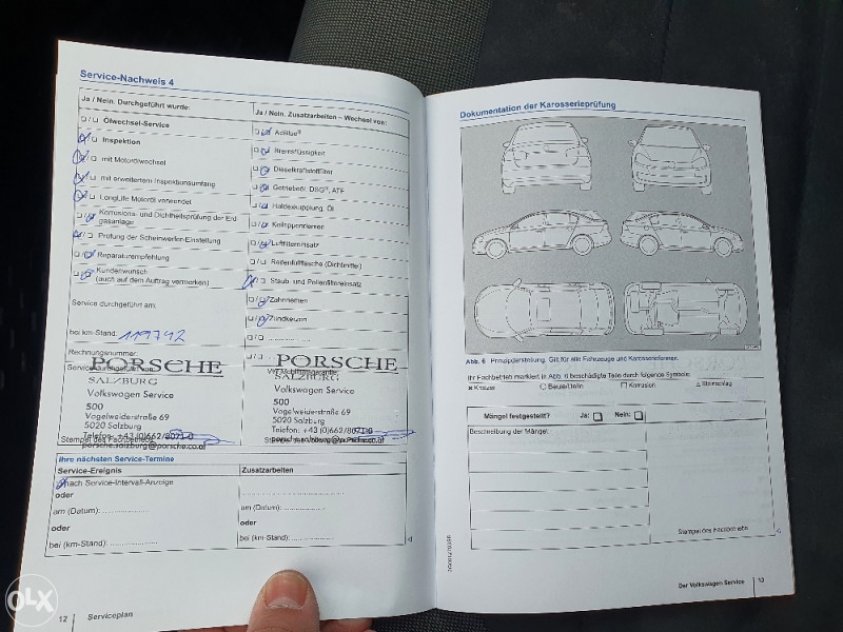 Service-Nachweis 4
Ja / Nein. Durchgeführt wurde:
Ölwechsel-Service
Inspektion
mit Motorölwechsel
mit erweitertem Inspektionsumfang
LongLife Motoröl verwendet
Korrosions- und Dichtheitsprüfung der Erd-
gasanlage
Prüfung der Scheinwerfer-Einstellung
Reparaturempfehlung
Kundenwunsch
(auch auf dem Auftrag vermerken)
Service durchgeführt am:
bei km-Stand: 119742
Rechnungsnummer:
PORSCHE
SALZBURG
Volkswagen Service
500
Vogelweiderstraße 69
5020 Salzburg
Telefon: +43 (0)662/8071-0
porsche.salzburg@porsche.co.at
Ja / Nein. Zusatzarbeiten – Wechsel von:
AdBlue®
Bremsflüssigkeit
Dieselkraftstofffilter
Getriebeöl: DSG®, ATF
Haldexkupplung, Öl
Keilrippenriemen
Luftfiltereinsatz
Reifenfüllflasche (Dichtmittel)
Staub- und Pollenfiltereinsatz
Zahnriemen
Zündkerzen
PORSCHE
SALZBURG
Volkswagen Service
500
Vogelweiderstraße 69
5020 Salzburg
Telefon: +43 (0)662/8071-0
porsche.salzburg@porsche.co.at
Ihre nächsten Service-Termine
Service-Ereignis Zusatzarbeiten
nach Service-Intervall-Anzeige
oder
am (Datum): am (Datum):
oder oder
bei (km-Stand): bei (km-Stand):
12 Serviceplan
Dokumentation der Karosserieprüfung
Abb. 6 Prinzipdarstellung. Gilt für alle Fahrzeuge und Karosserieformen.
Ihr Fachbetrieb markiert in Abb. 6 beschädigte Teile durch folgende Symbole:
Kratzer Beule/Delle Korrosion Steinschlag
Mängel festgestellt? Ja: Nein:
Beschreibung der Mängel:
Stempel des Fachbetriebs
Der Volkswagen Service 13
OLX